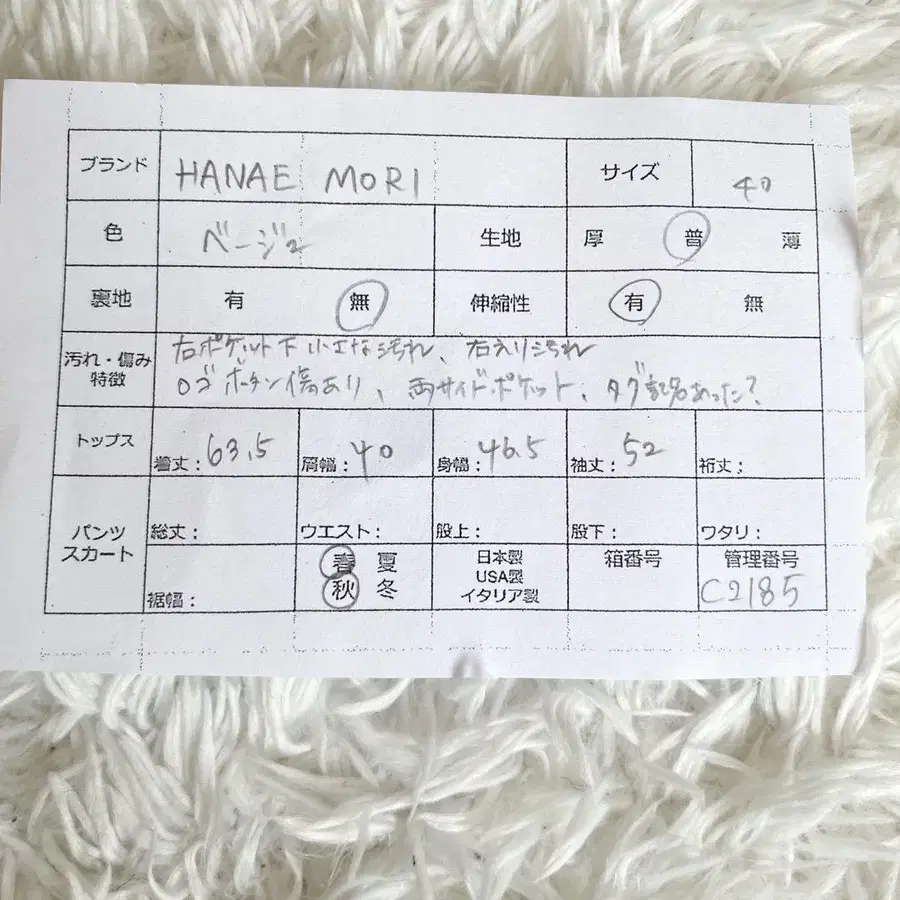 ブランド HANAE MORI サイズ 40
色 ベージュ 生地 厚 普 薄
裏地 有 無 伸縮性 有 無
汚れ・傷み 特徴 右ポケット下小さな汚れ、右えり汚れ
ロゴボタン傷あり、両サイドポケット、タグ記名あった?
トップス 着丈:63.5 肩幅:40 身幅:46.5 袖丈:52 裄丈:
パンツ スカート 総丈: ウエスト: 股上: 股下: ワタリ:
裾幅: 春 夏 秋 冬 日本製 USA製 イタリア製 箱番号 管理番号 C2185